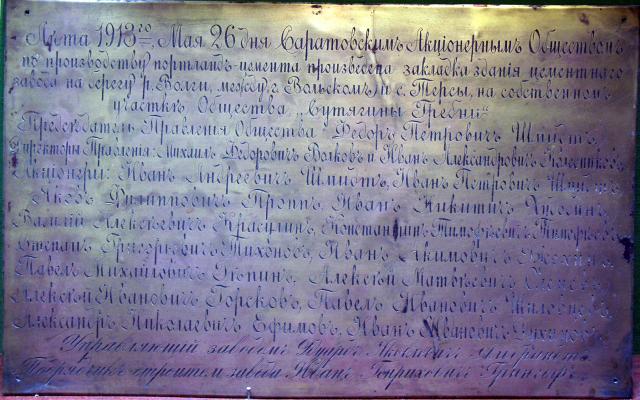 Лѣта 1913го. Мая 26 дня Саратовскимъ Акціонернымъ Обществомъ
по производству портландъ-цемента произвѣсена закладка зданія цементнаго
завода на берегу р. Волги, между г. Вольскомъ и с. Терсы, на собственномъ
участкѣ Общества „Сутягины Гребни“
Предсѣдатель Правленія Общества Федоръ Петровичъ Шмидтъ,
Директоры Правленія: Михаилъ Федоровичъ Волковъ и Иванъ Александровичъ Колесниковъ
Акціонеры: Иванъ Андреевичъ Шмидтъ, Иванъ Петровичъ Шмидтъ,
Яковъ Филипповичъ Проппъ, Иванъ Никитичъ
Василій Алексѣевичъ Красулинъ, Константинъ Тимофѣевичъ Тимофѣевъ
Степанъ Григорьевичъ Тихоновъ, Иванъ Акимовичъ
Павелъ Михайловичъ Алексѣй Матвѣевичъ
Алексѣй Ивановичъ Горсковъ, Павелъ Ивановичъ
Александръ Николаевичъ Ефимовъ, Иванъ Ивановичъ
Управляющій заводомъ Эдуардъ Яковлевичъ
Подрядчикъ строитель завода Иванъ Генриховичъ